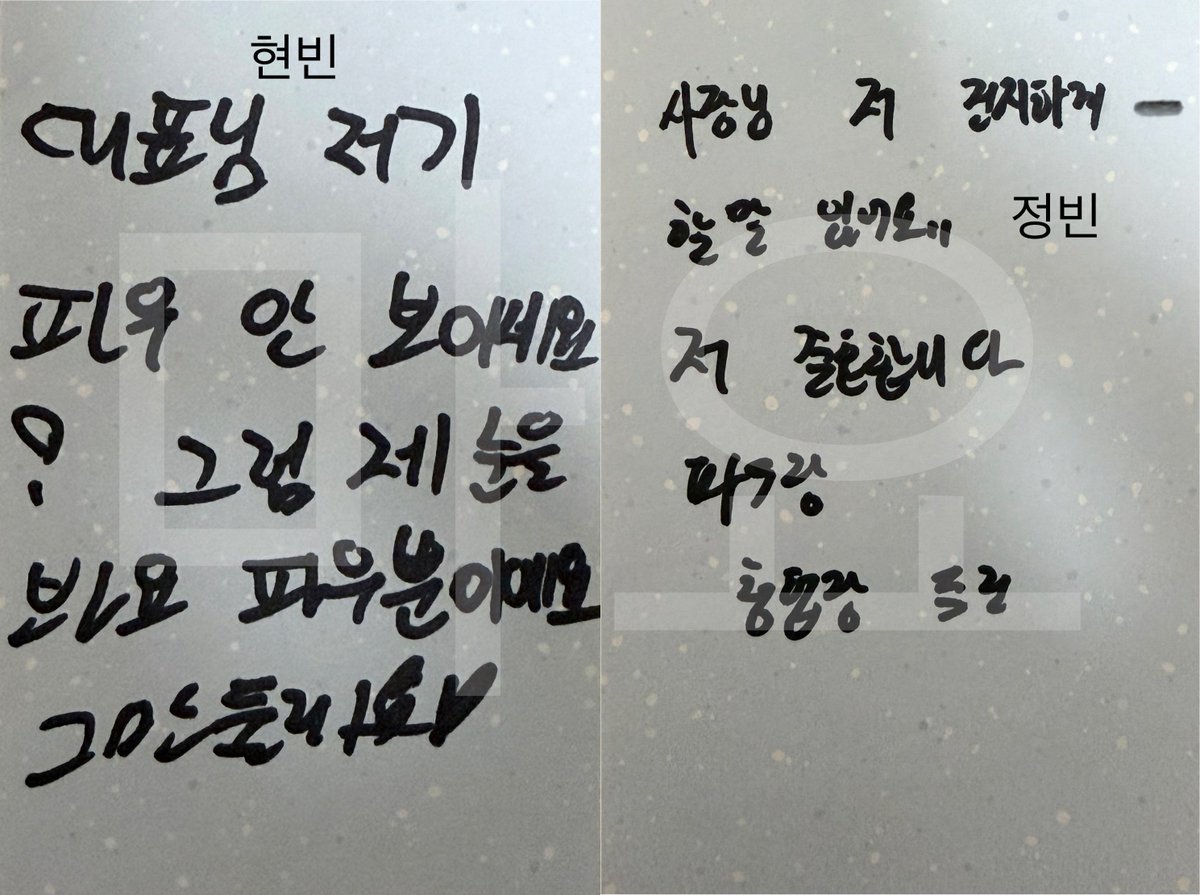 현빈
대표님 저기
파우 안 보이세요
? 그럼 제 눈을
봐요 파우분이에요
그만둘래요
사장님 저 진지하게
할 말 있어요..
정빈
저 졸혼합니다
파우랑
홍범랑